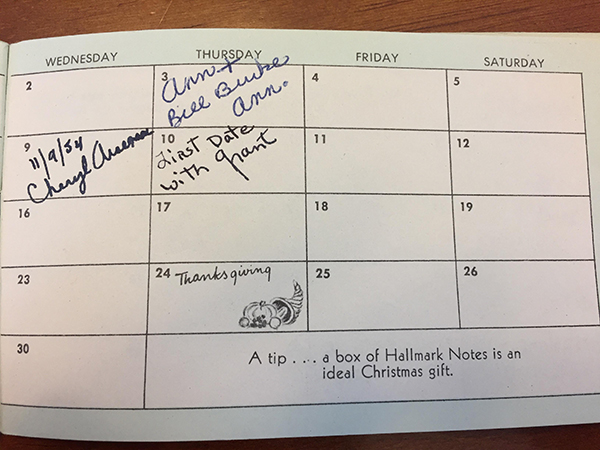 WEDNESDAY THURSDAY FRIDAY SATURDAY
2 3 4 5
Ann +
Bill Burke
Ann.
9 10 11 12
11/9/54
Cheryl
First Date
with Grant
16 17 18 19
23 24 25 26
Thanksgiving
30
A tip . . . a box of Hallmark Notes is an
ideal Christmas gift.